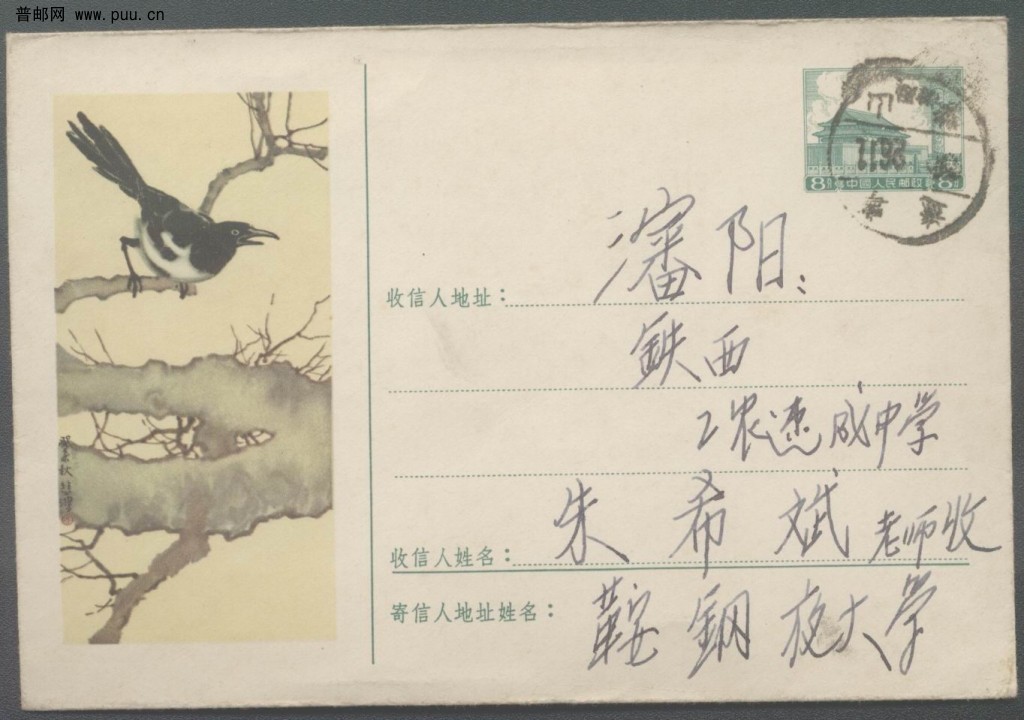 普邮网 www.puu.cn
8 中國人民邮政 8
收信人地址: 瀋阳:
鉄西
工农速成中学
收信人姓名: 朱希斌 老师收
寄信人地址姓名: 鞍鋼夜大学